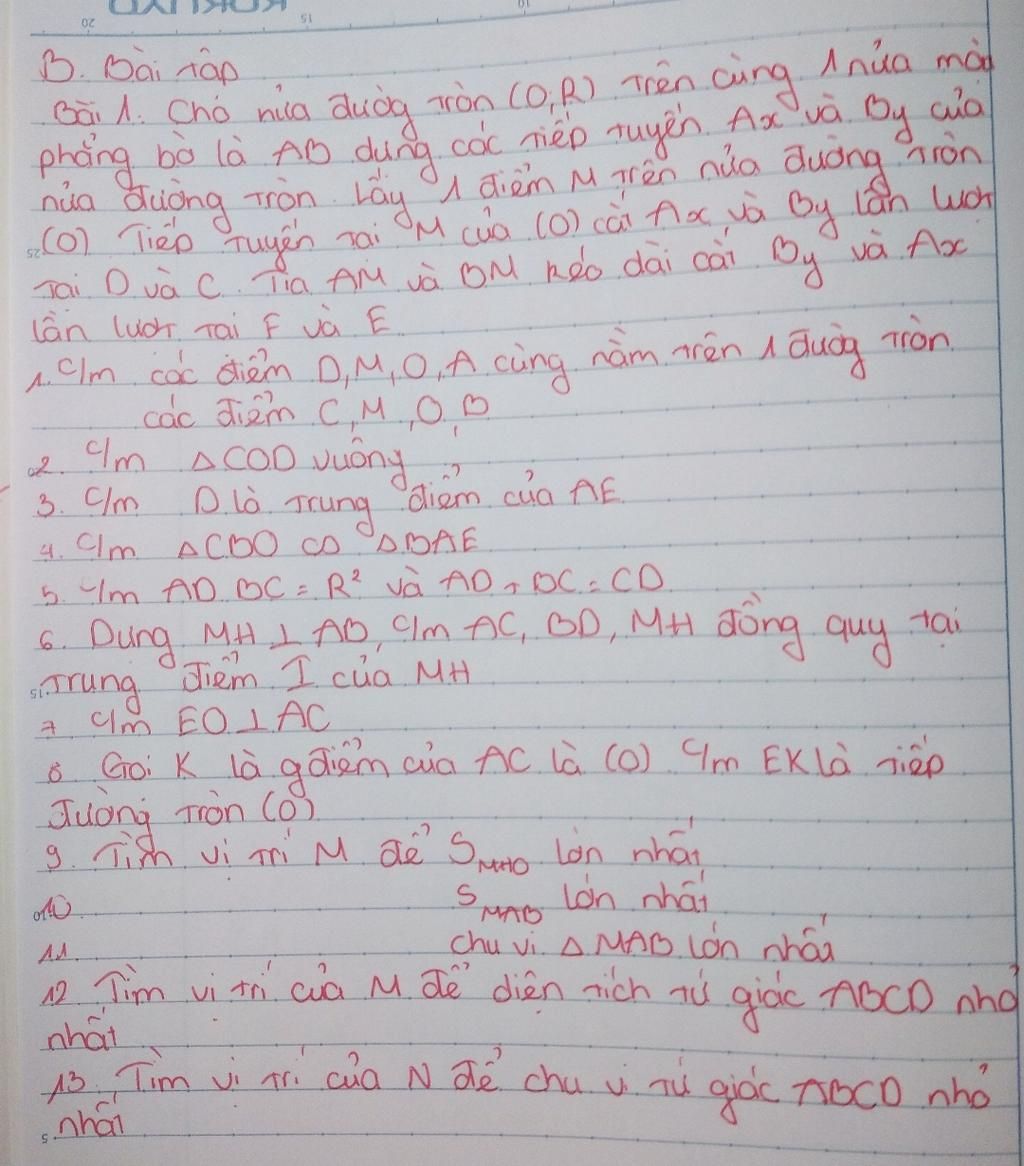 KOKUYO
B. Bài tập
Bài 1. Cho nửa đường tròn (O,R) Trên cùng 1 nửa mặt
phẳng bờ là AB dựng các tiếp tuyến Ax và By của
nửa đường tròn. Lấy 1 điểm M trên nửa đường tròn
(O) Tiếp tuyến tại M của (O) cắt Ax và By lần lượt
tại D và C. Tia AM và BM kéo dài cắt By và Ax
lần lượt tại F và E
1. C/m các điểm D, M, O, A cùng nằm trên 1 đường tròn.
các điểm C, M, O, B
2. C/m Δ COD vuông
3. C/m D là trung điểm của AE
4. C/m Δ CBO ∽ Δ BAE
5. C/m AD. BC = R² và AD + BC = CD
6. Dựng MH ⊥ AB, C/m AC, BD, MH đồng quy tại
trung điểm I của MH
7 C/m EO ⊥ AC
8 Gọi K là gđiểm của AC là (O) C/m EK là tiếp
đường tròn (O)
9. Tìm vị trí M để S MHO lớn nhất
10 S MAB lớn nhất
11 chu vi Δ MAB lớn nhất
12 Tìm vị trí của M để diện tích tứ giác ABCD nhỏ
nhất
13. Tìm vị trí của N để chu vi tứ giác ABCD nhỏ
nhất